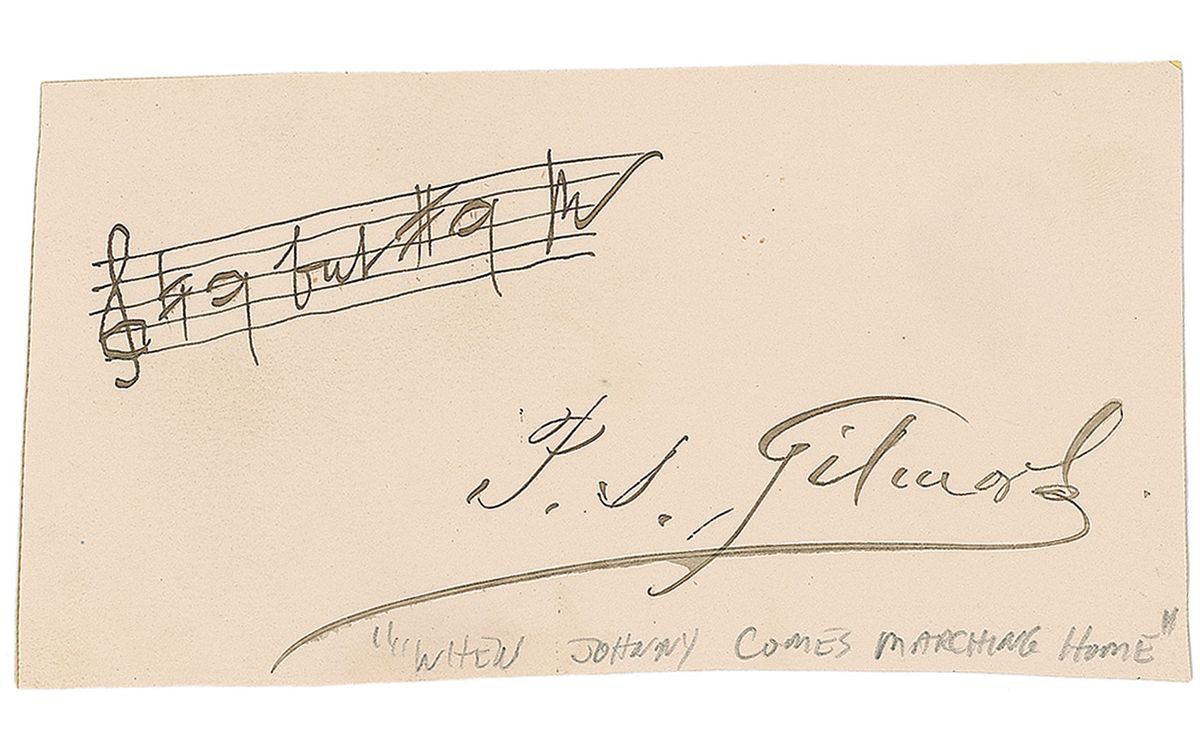 but
P. S. Gilmore.
"WHEN JOHNNY COMES MARCHING HOME"